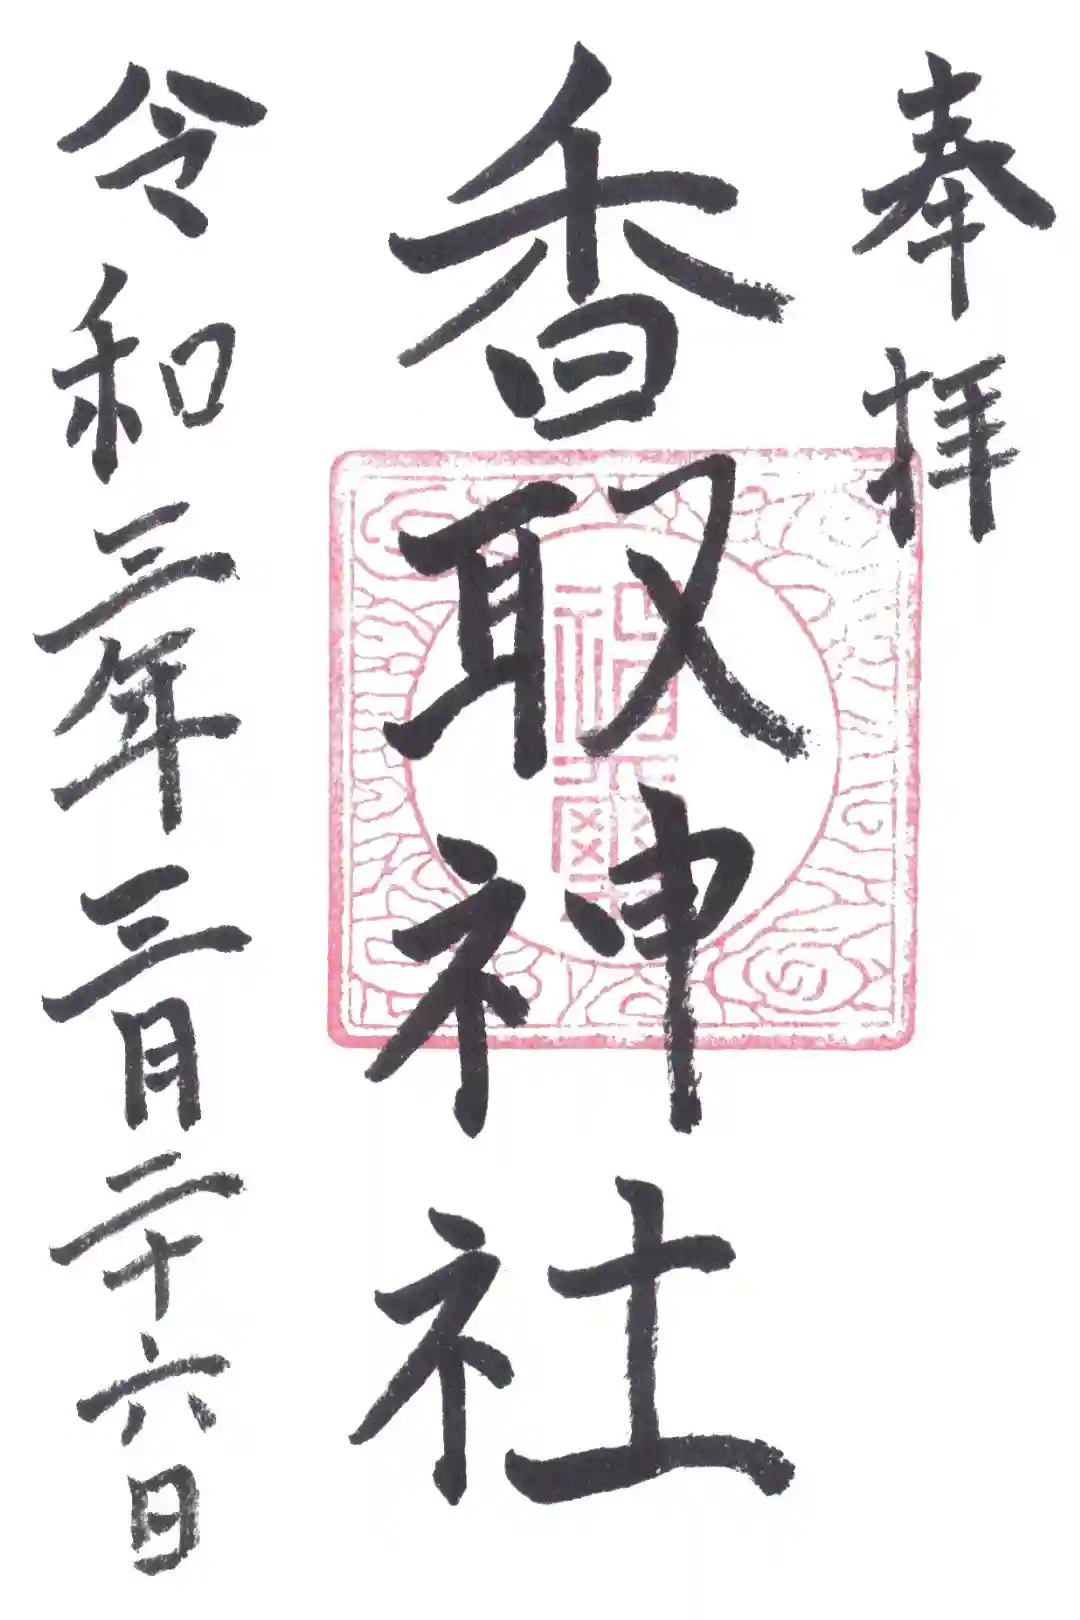 奉拝
香取神社
令和三年三月二十六日